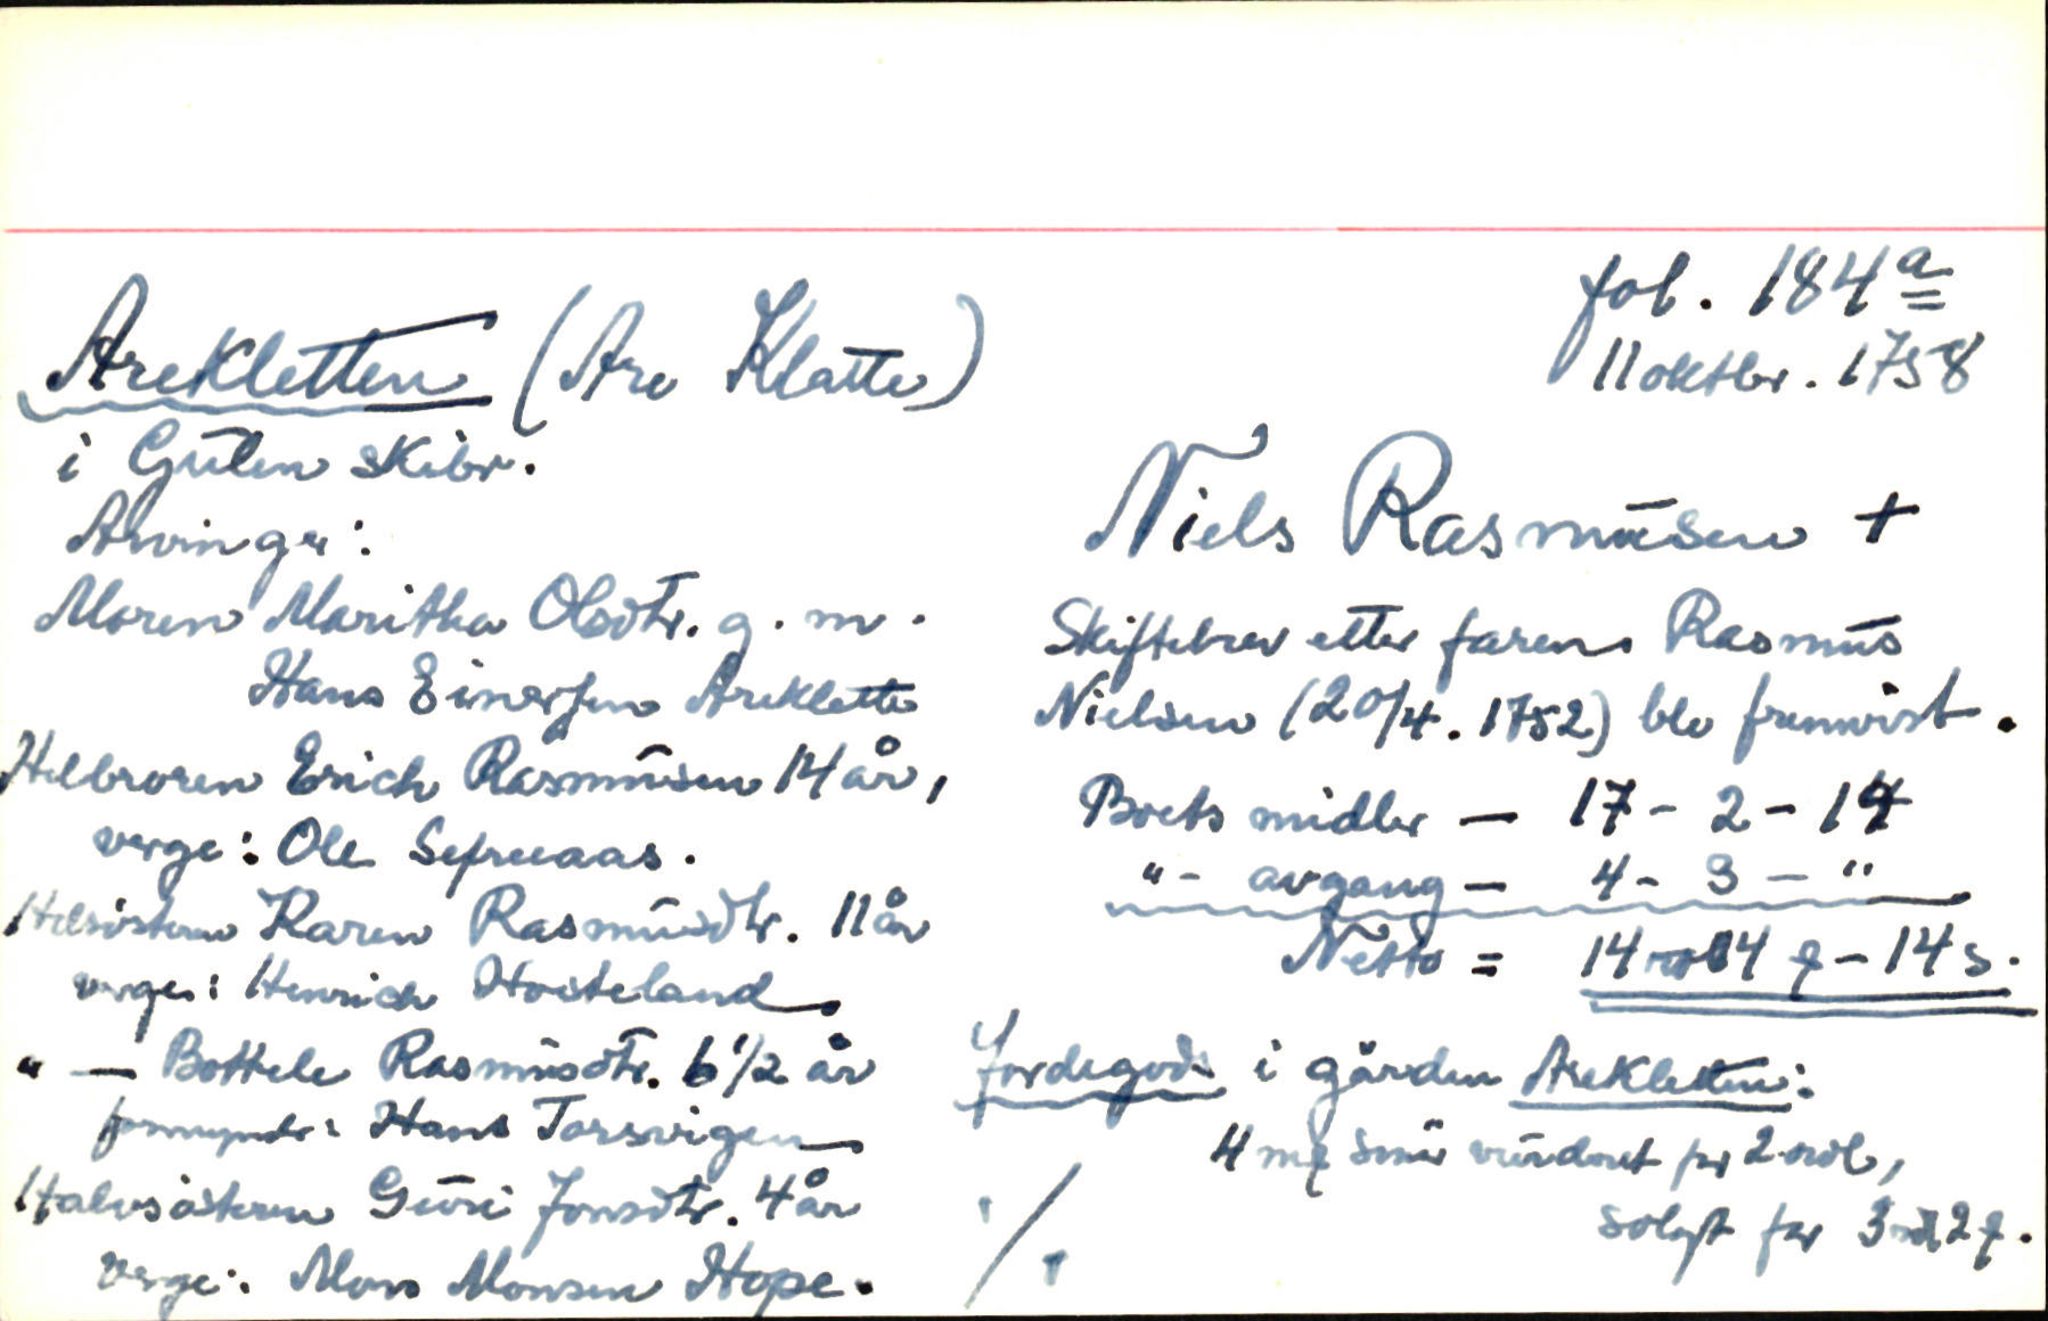 fol. 184 a
11 oktbr. 1758
Arekletten (Are Klatte)
i Gulen skibr.
Arvinger:
Moren Maritha Olsdtr. g. m.
Hans Einersen Areklette
Helbroren Erich Rasmusen 14 år,
verge: Ole
Helsösteren Karen Rasmusdtr. 11 år
verge: Henrich Hosteland
" — Bottele Rasmusdtr. 6 1/2 år
formynder: Hans Torsvigen
Halvsösteren Guri Jonsdtr. 4 år
Verge: Mons Monsen Hope.
Niels Rasmusen +
Skiftebrev etter faren Rasmus
Nielsen (20/4. 1752) ble fremvist.
Boets midler — 17 - 2 - 14
" - avgang — 4 - 3 - "
Netto = 14 rdl 4 - 14 s.
Jordegods i gården Arekletten:
4 smör vurderet for 2 rdl,
solgt for 3 rdl 2
./.